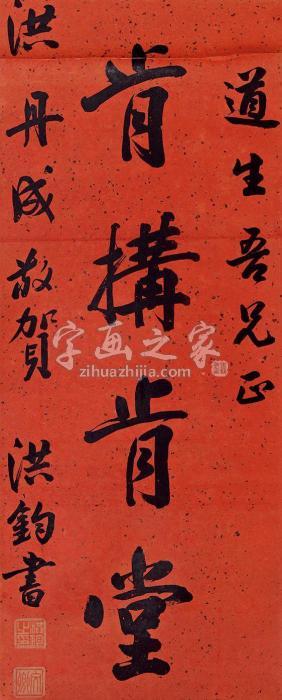 道生吾兄正
肯構肯堂
洪丹成敬賀 洪鈞書
字画之家
zihuazhijia.com